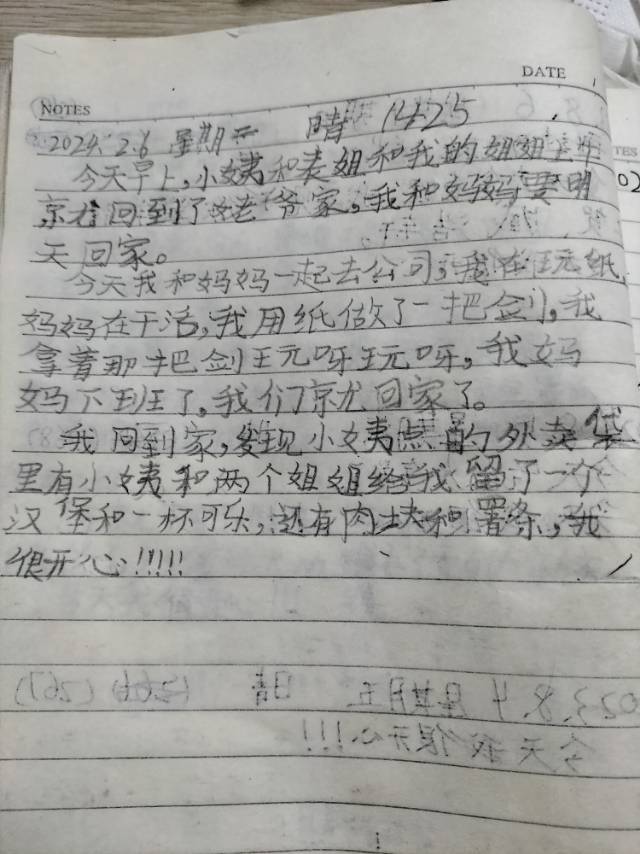 DATE
NOTES
2024.2.6 星期二 晴 1425
今天早上,小姨和表姐和我的姐姐
就回到了姥爷家,我和妈妈要明
天回家。
今天我和妈妈一起去公司,我在玩纸,
妈妈在干活,我用纸做了一把剑,我
拿着那把剑玩呀玩呀,我妈
妈下班了,我们就回家了。
我回到家,发现小姨点的外卖袋
里有小姨和两个姐姐给我留了一个
汉堡和一杯可乐,还有肉块和署条,我
很开心!!!!!
023.8.4 星期五 晴 (266)(267)
今天我很开心!!!